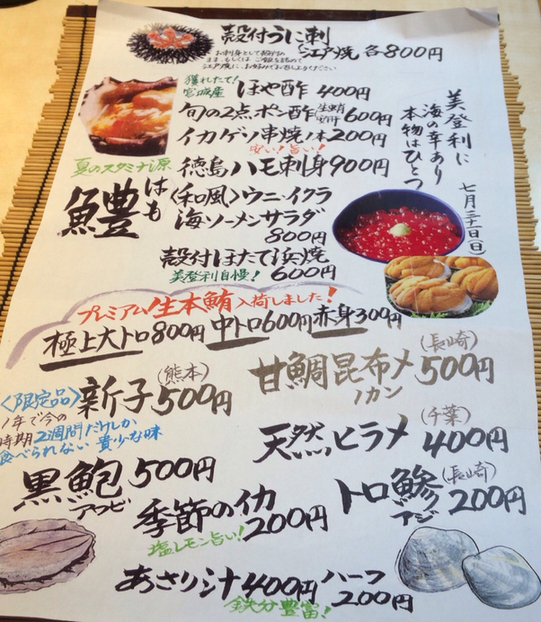 殻付うに刺
江戸焼 各800円
お刺身として殻付の
まま、もしくは
江戸焼に、お好みでお召し上がりください
獲れたて!
宮城産 ほや酢 400円
旬の2点ポン酢 600円
イカゲソ串焼1本200円
安い!旨い!
夏のスタミナ源 徳島ハモ刺身900円
鱧はも
〈和風〉ウニ・イクラ
海ソーメンサラダ
800円
殻付ほたて浜焼
美登利自慢! 600円
美登利に
海の幸あり
本物はひとつ
七月三十一日(日)
プレミアム生本鮪入荷しました!
極上大トロ800円 中トロ600円 赤身300円
〈限定品〉新子(熊本)500円
1年で今の
時期2週間だけしか
食べられない貴少な味
甘鯛昆布〆(長崎)500円
ノカン
天然ヒラメ(千葉)400円
黒鮑500円
アワビ
季節のイカ
200円
塩レモン旨い!
トロ鯵(長崎)200円
アジ
あさり汁400円 ハーフ
200円
鉄分豊富!